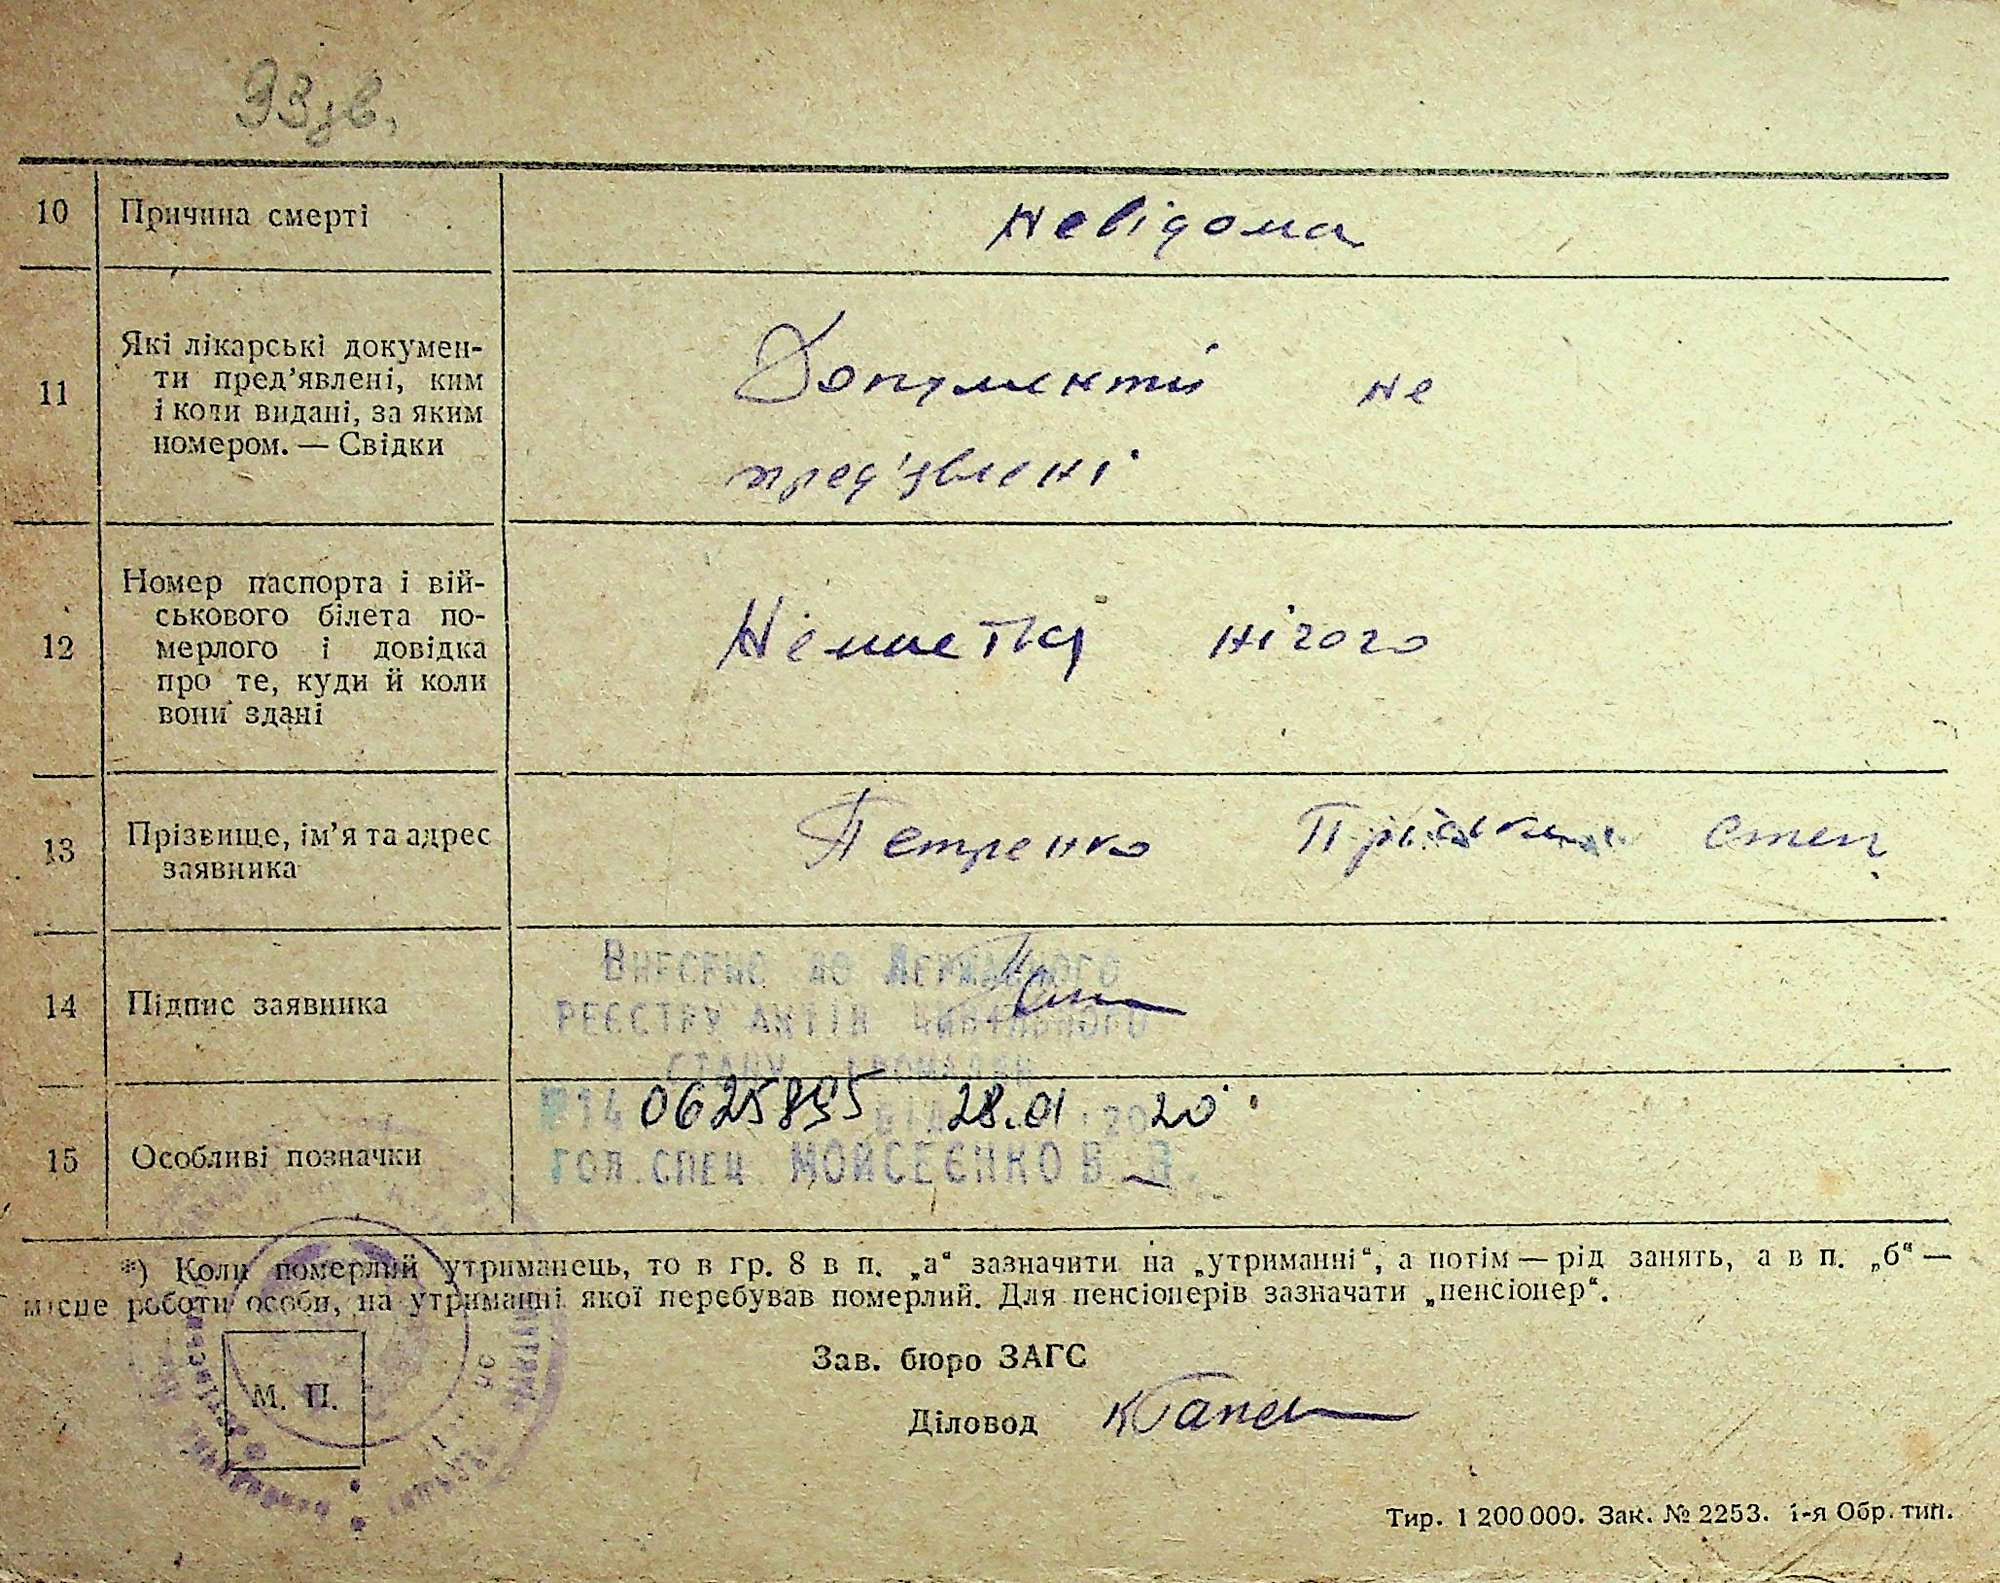 93зв.
10 Причина смерті невідома
11 Які лікарські докумен-
ти пред’явлені, ким
і коли видані, за яким
номером. — Свідки
Документи не
пред'явлені
12 Номер паспорта і вій-
ськового білета по-
мерлого і довідка
про те, куди й коли
вони здані
нічого
13 Прізвище, ім’я та адрес
заявника
Петренко
14 Підпис заявника
Внесено до Державного
реєстру актів цивільного
стану громадян
№14 0625895 від 28.01.2020
гол.спец Мойсеєнко В.
15 Особливі позначки
*) Коли померлий утриманець, то в гр. 8 в п. „а“ зазначити на „утриманні“, а потім — рід занять, а в п. „б“ —
місце роботи особи, на утриманні якої перебував померлий. Для пенсіонерів зазначати „пенсіонер“.
М. П.
Зав. бюро ЗАГС
Діловод
Тир. 1 200 000. Зак. № 2253. 1-я Обр. тип.